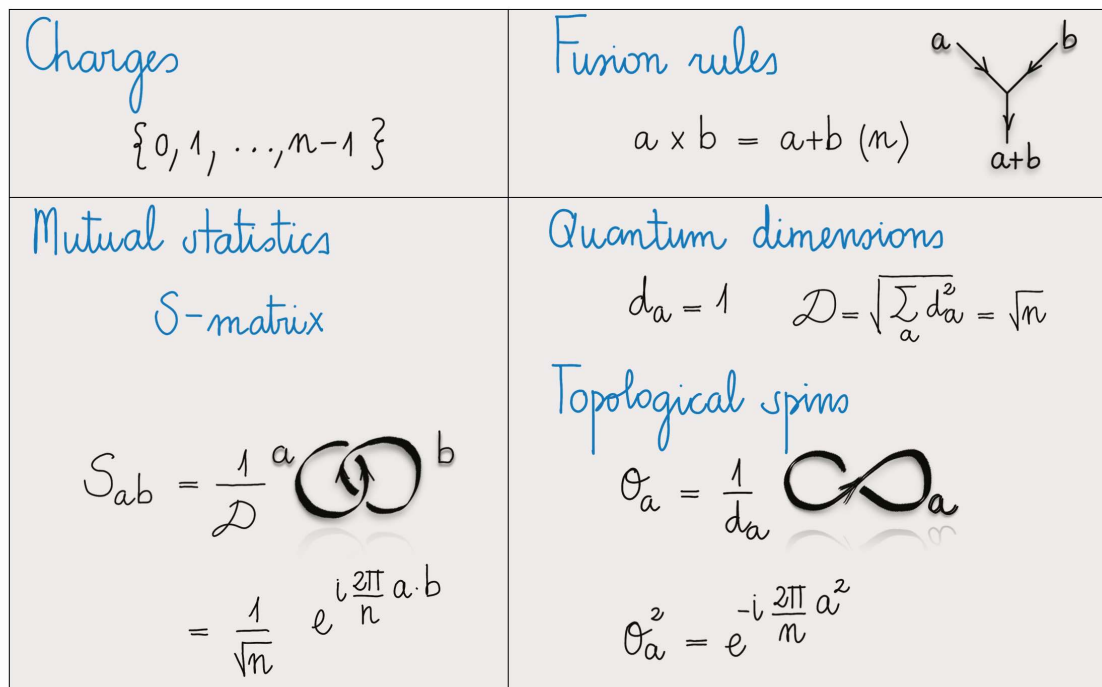 Charges
{0, 1, ..., n-1}
Fusion rules
a x b = a+b (n)
a
b
a+b
Mutual statistics
S-matrix
S_ab = 1/𝒟 a b
= 1/√n e^{i 2π/n a·b}
Quantum dimensions
d_a = 1 𝒟 = √(∑_a d_a^2) = √n
Topological spins
θ_a = 1/d_a a
θ_a^2 = e^{-i 2π/n a^2}